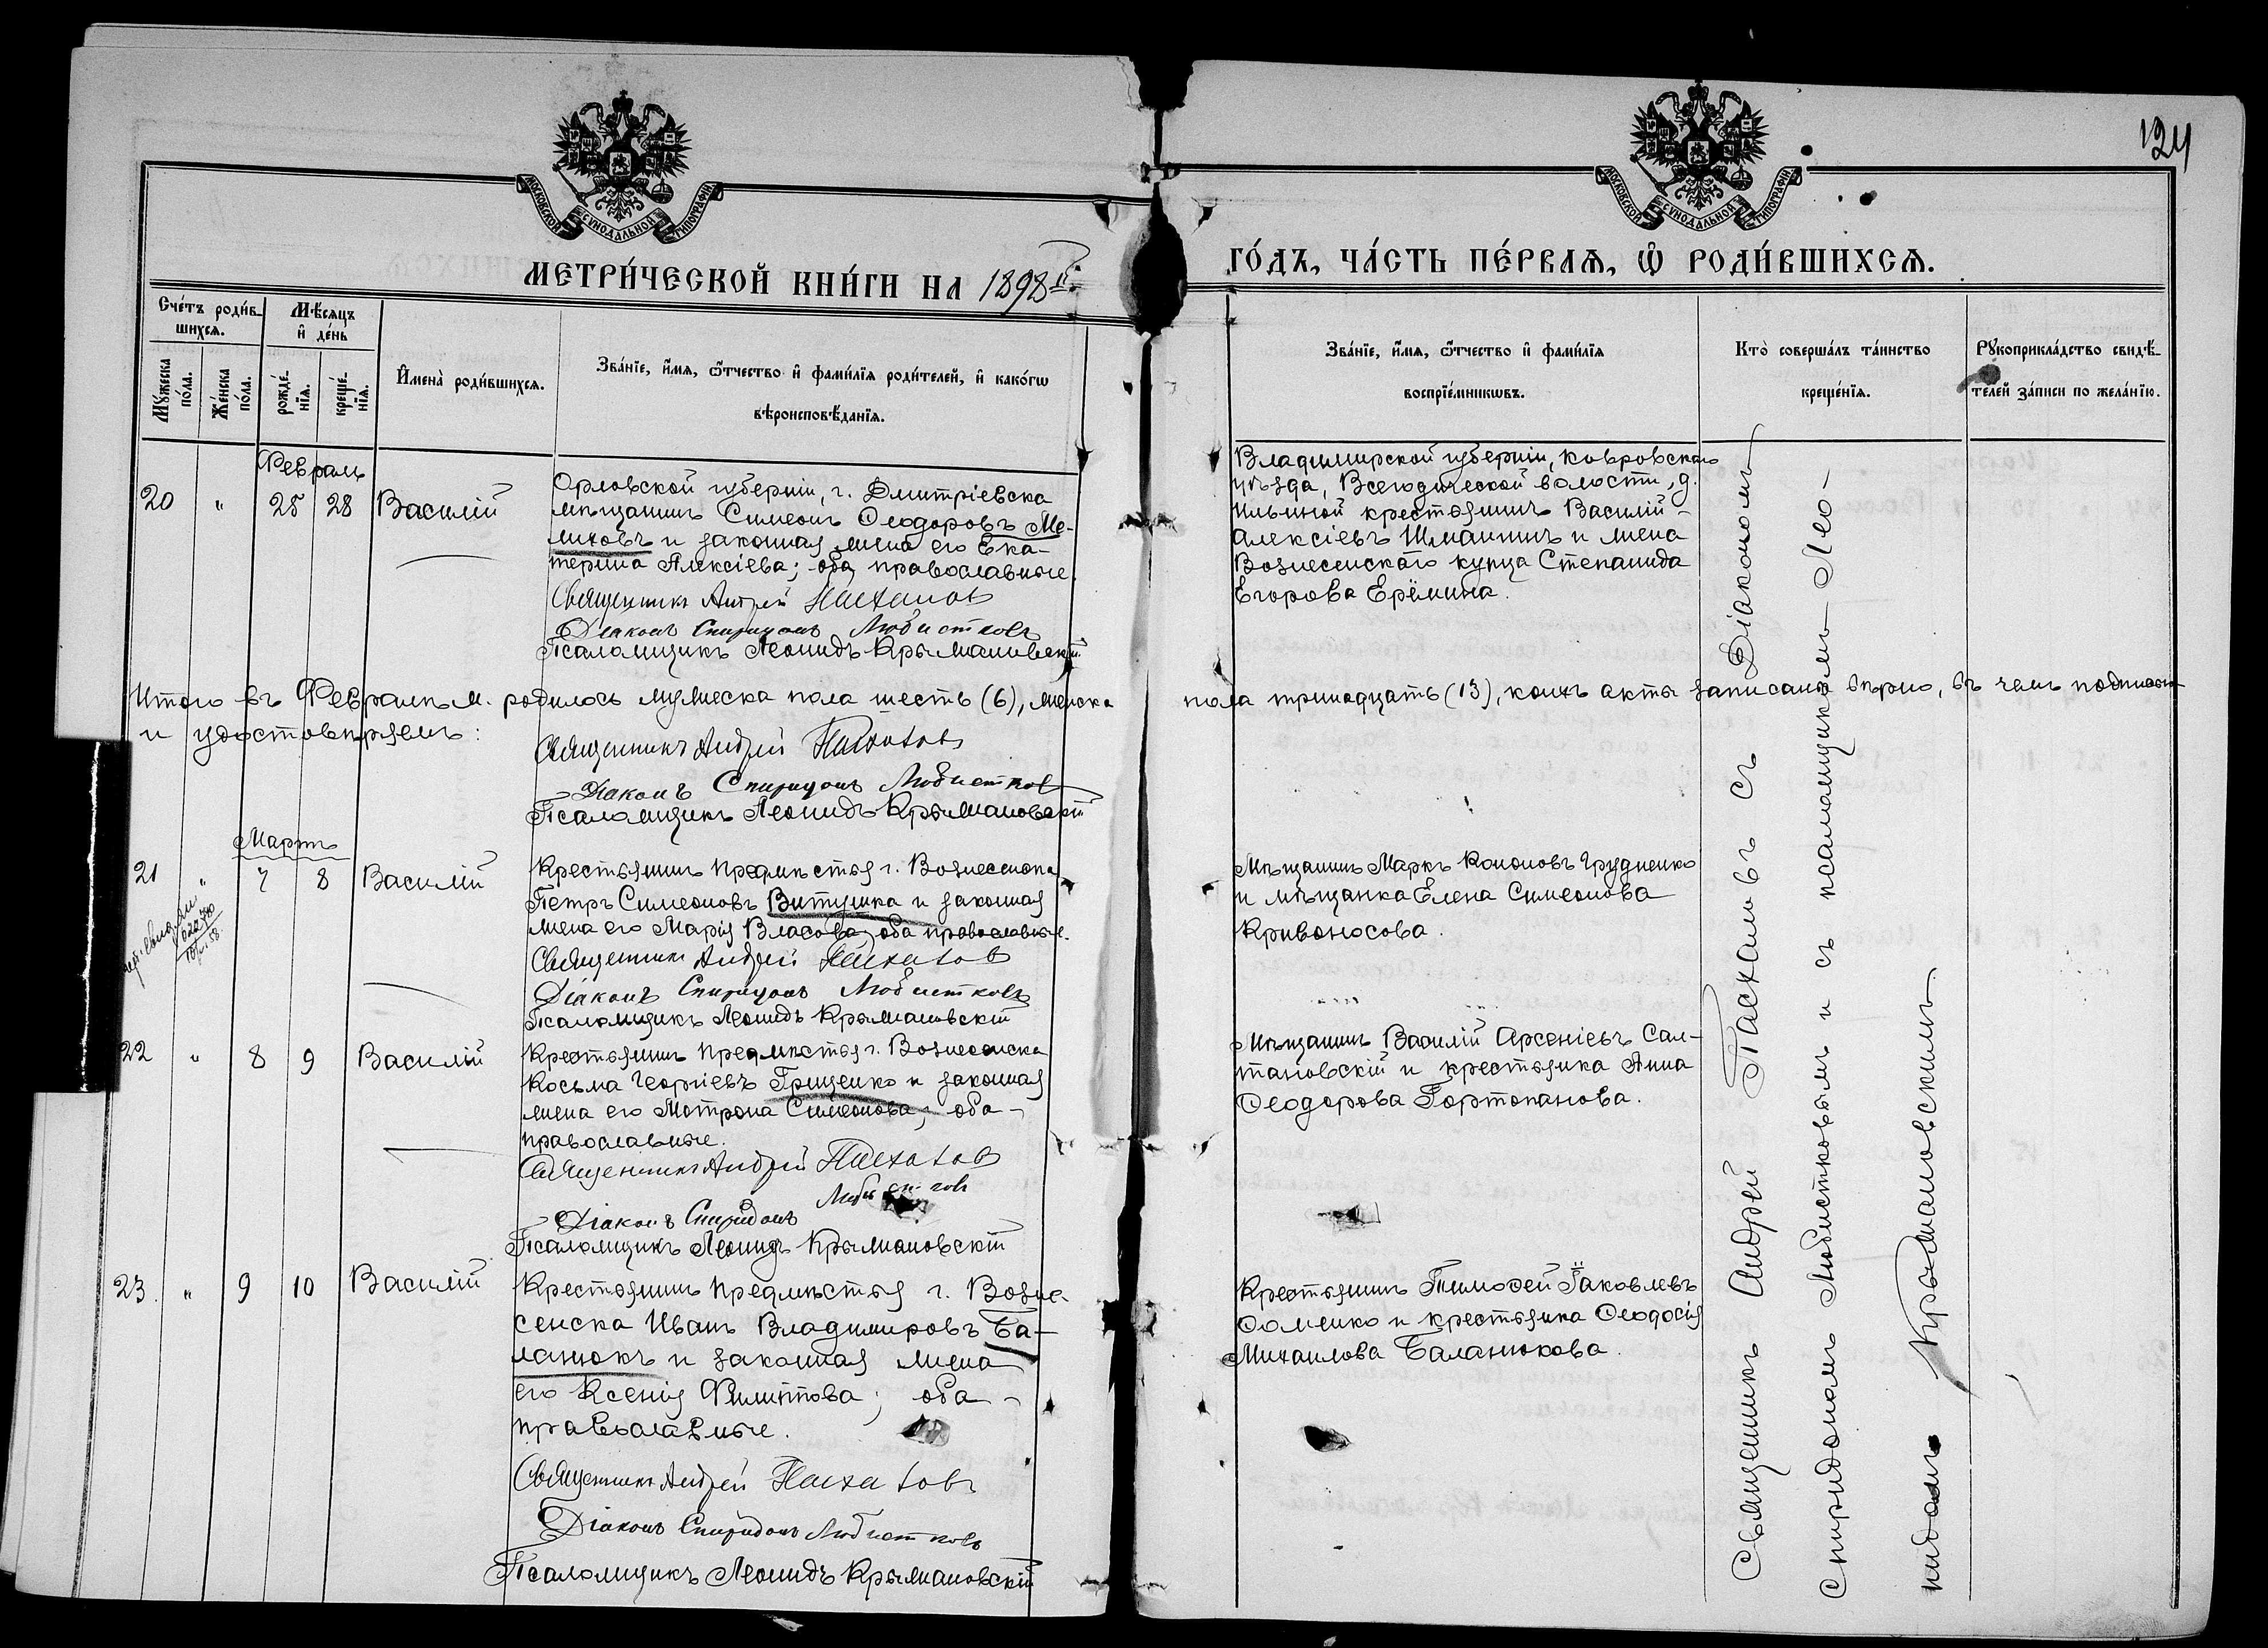 124
МОСКОВСКОЙ СУНОДАЛЬНОЙ ТИПОГРАФІИ
МОСКОВСКОЙ СУНОДАЛЬНОЙ ТИПОГРАФІИ
МЕТРИ́ЧЕСКОЙ КНИ́ГИ НА 1898й
ГО́ДЪ, ЧА́СТЬ ПЕ́РВАѦ, Ѿ РОДИ́ВШИХСѦ.
Сче́тъ роди́в-
шихсѧ.
Мѣ́сѧцъ
и҆ де́нь
Мꙋ́жеска
по́ла.
Же́нска
по́ла.
рожде́-
нїѧ.
креще́-
нїѧ.
И҆мена̀ роди́вшихсѧ.
Зва́нїе, и҆́мѧ, ѿ́тчество и҆ фами́лїѧ роди́телей, и҆ како́гѡ
вѣроисповѣ́данїѧ.
Зва́нїе, и҆́мѧ, ѿ́тчество и҆ фами́лїѧ
воспрїе́мникѡвъ.
Кто̀ соверша́лъ та́инство
креще́нїѧ.
Рꙋкоприкла́дство свидѣ́-
телей за́писи по жела́нїю.
Февраль
20 " 25 28 Василій
Орловской губерніи, г. Дмитріевска
мѣщанинъ Симеонъ Ѳеодоровъ Ме-
лиховъ и законная жена его Ека-
терина Алексіева; оба православные.
Священникъ Андрей Пасхаловъ
Діаконъ Спиридонъ Любистковъ
Псаломщикъ Леонидъ Крыжановскій
Владимирской губерніи, Ковровскаго
уѣзда, Всегодической волости, д.
Ильиной крестьянинъ Василій
Алексіевъ Шманинъ и жена
Вознесенскаго купца Степанида
Егорова Ерёмина.
Итого въ Февралѣ м. родилось мужеска пола шесть (6), женска пола тринадцать (13), коихъ акты записаны вѣрно, въ чемъ подписью
и удостовѣряемъ:
Священникъ Андрей Пасхаловъ
Діаконъ Спиридонъ Любистковъ
Псаломщикъ Леонидъ Крыжановскій
Мартъ
21 " 7 8 Василій
Крестьянинъ предмѣстья г. Вознесенска
Петръ Симеоновъ Витушка и законная
жена его Марія Власова; оба православные.
Священникъ Андрей Пасхаловъ
Діаконъ Спиридонъ Любистковъ
Псаломщикъ Леонидъ Крыжановскій
Мѣщанинъ Маркъ Кононовъ Грудненко
и мѣщанка Елена Симеонова
Кривоносова.
22 " 8 9 Василій
Крестьянинъ предмѣстья г. Вознесенска
Косьма Георгіевъ Гриценко и законная
жена его Мотрона Симеонова; оба
православные.
Священникъ Андрей Пасхаловъ
Діаконъ Спиридонъ Любистковъ
Псаломщикъ Леонидъ Крыжановскій
Мѣщанинъ Василій Арсеніевъ Сал-
тановскій и крестьянка Анна
Ѳеодорова Гортопанова.
23. " 9 10 Василій
Крестьянинъ предмѣстья г. Возне-
сенска Иванъ Владимировъ Ба-
ланюкъ и законная жена
его Ксенія Филиппова; оба
православные.
Священникъ Андрей Пасхаловъ
Діаконъ Спиридонъ Любистковъ
Псаломщикъ Леонидъ Крыжановскій
Крестьянинъ Тимоѳей Іаковлевъ
Ѳоменко и крестьянка Ѳеодосія
Михаилова Баланюкова.
Священникъ Андрей Пасхаловъ съ Діакономъ
Спиридономъ Любистковымъ и съ псаломщикомъ Лео-
нидомъ Крыжановскимъ